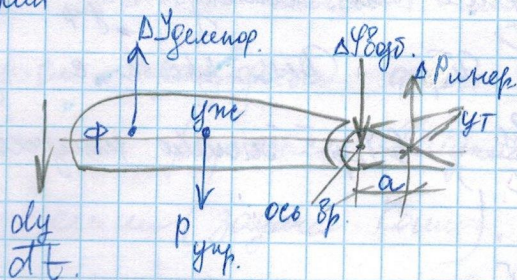 ΔYделепор.
ΔYвозб.
ΔPинер
Ф
уж
ут
а
ось вр.
Pупр.
dy
dt